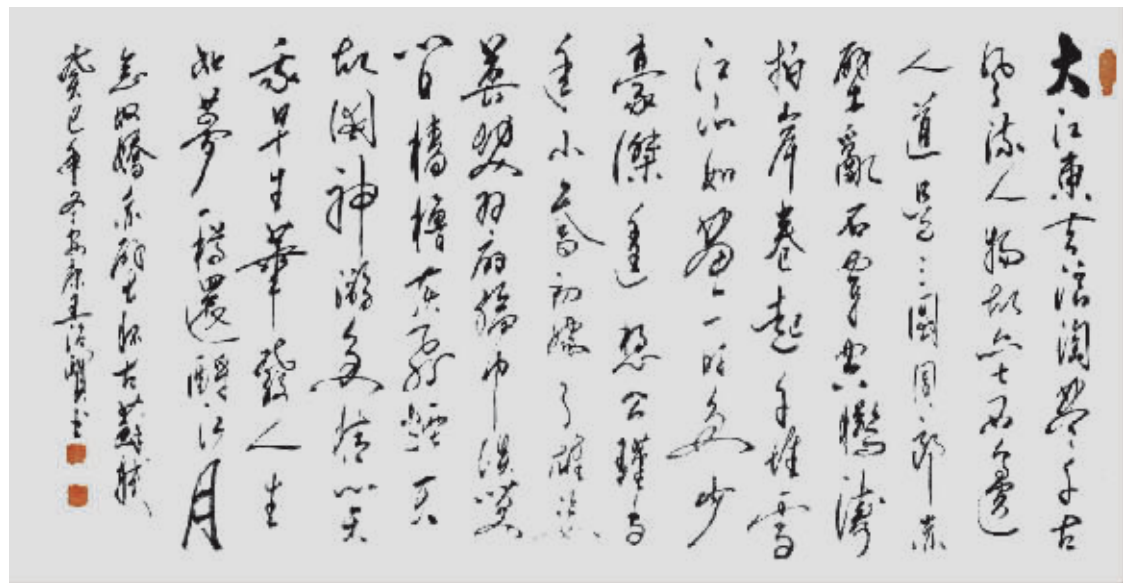 大江東去浪淘盡千古
風流人物故壘西邊
人道是三國周郎赤
壁亂石穿空驚濤
拍岸卷起千堆雪
江山如畫一時多少
豪傑遙想公瑾當
年小喬初嫁了雄姿
英發羽扇綸巾談笑
間檣櫓灰飛煙滅
故國神游多情應笑
我早生華發人生
如夢一樽還酹江月
念奴嬌赤壁懷古蘇軾
癸巳年冬安康王治賢書